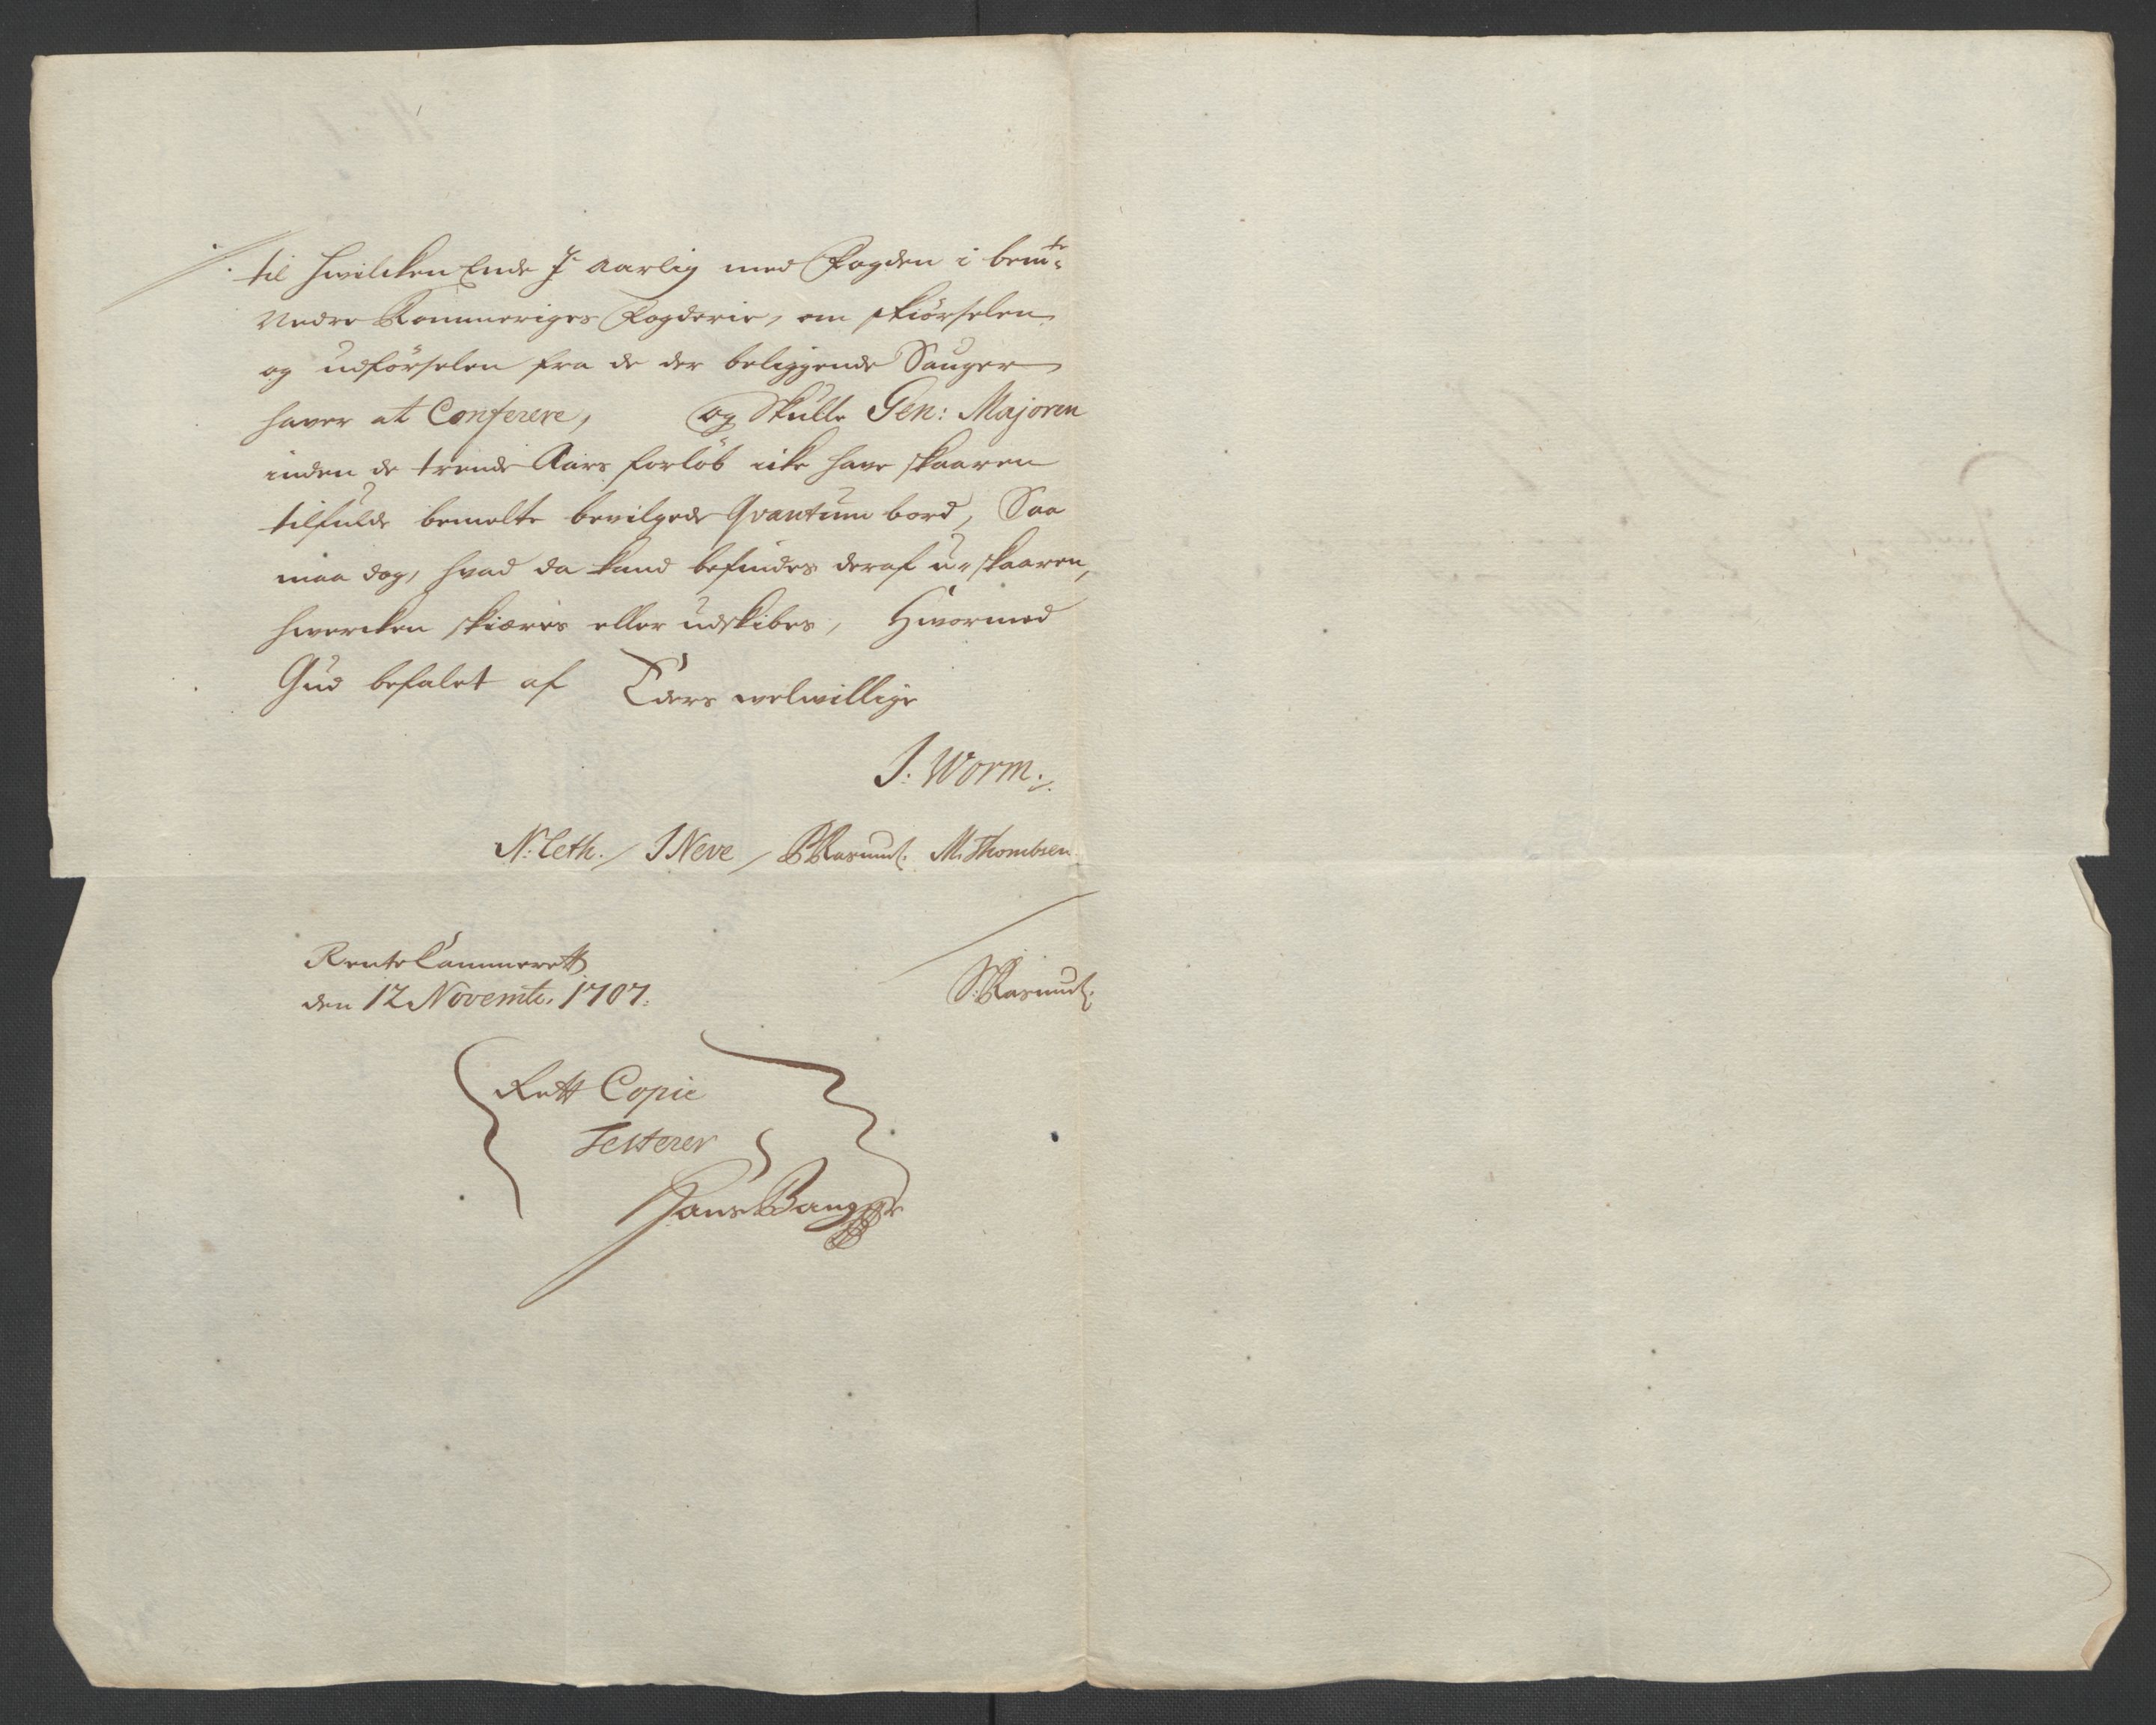 til hvilcken Ende I aarlig med Fogden i bemte
Nedre Rommeriges Fogderie, om skiörselen
og udförselen fra de der beliggende Sauger
haver at Conferere, og Skulle Gen: Majoren
inden de trende Aars forlöb icke have skaaren
tilfulde bemelte bevilgede Qvantum bord, Saa
maa dog, hvad da kand befindes deraf u-skaaren,
hvercken skiæris eller udskibes, Hvormed
Gud befalet af Eders velvillige
J. Worm.
N: Leth. / J Neve / Rasmus: M. Thombsen
Rente Cammerett
den 12 Novembr. 1707.
S. Rasmus:
Rett Copie
Testerer
Hans Bang